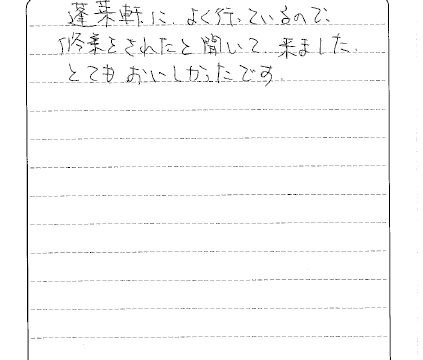 蓬莱軒に、よく行っているので、
修業をされたと聞いて、来ました。
とてもおいしかったです。